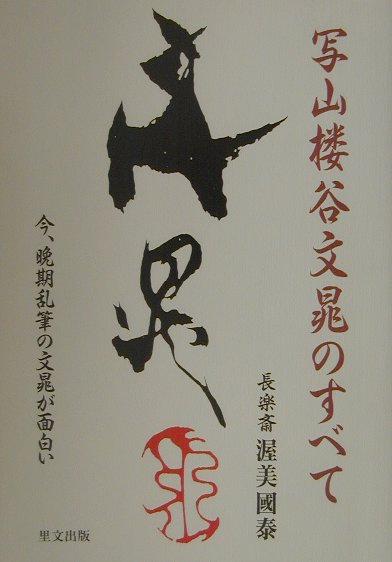 写山楼谷文晁のすべて
文晁
長楽斎 渥美國泰
今、晩期乱筆の文晁が面白い
里文出版